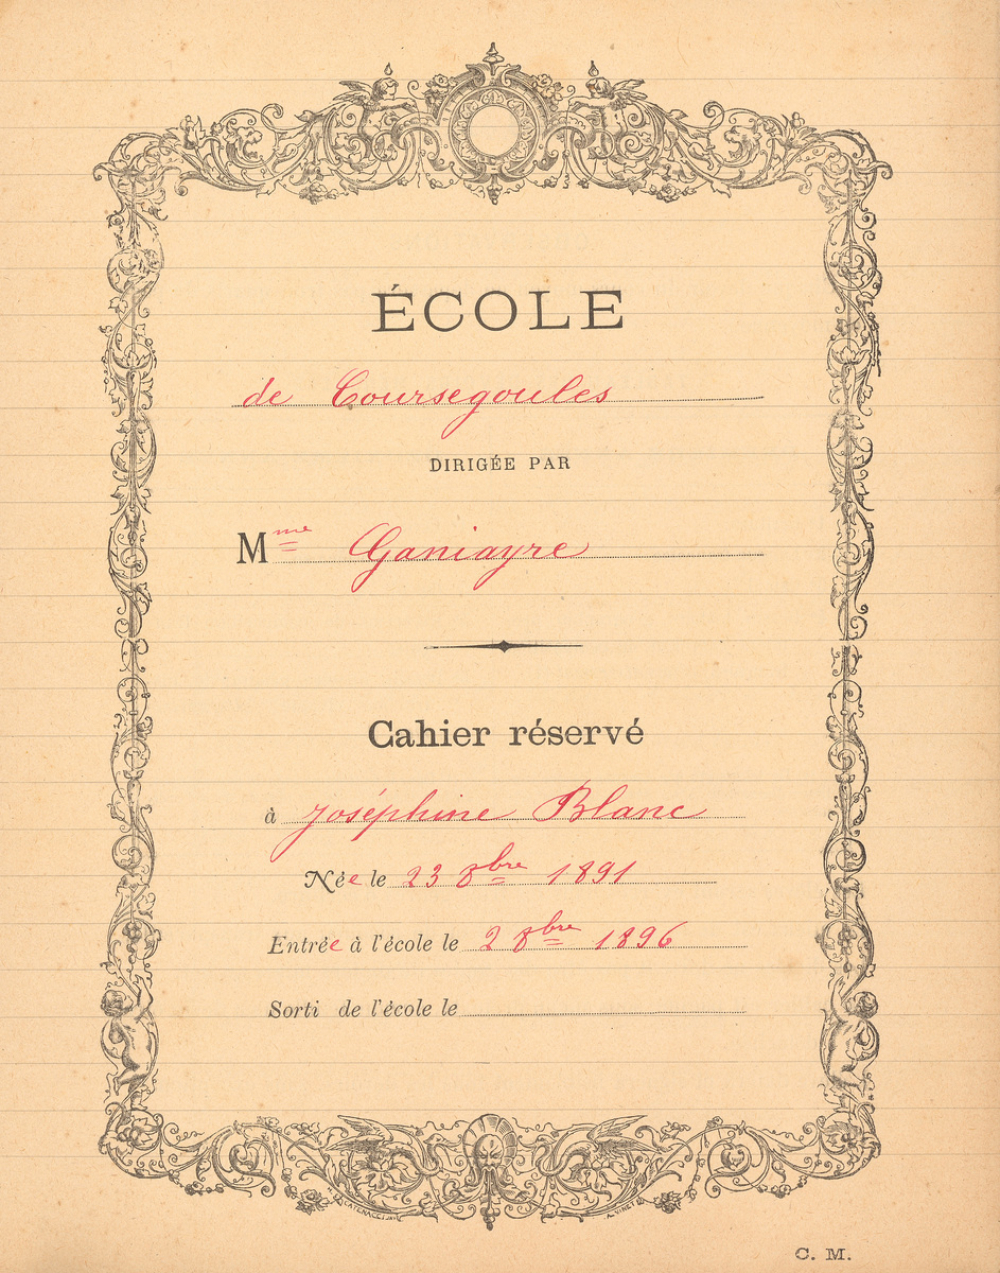 ÉCOLE
de Coursegoules
DIRIGÉE PAR
Mme Ganiayre
Cahier réservé
à Joséphine Blanc
Née le 23 8bre 1891
Entrée à l'école le 2 8bre 1896
Sorti de l'école le
C. M.